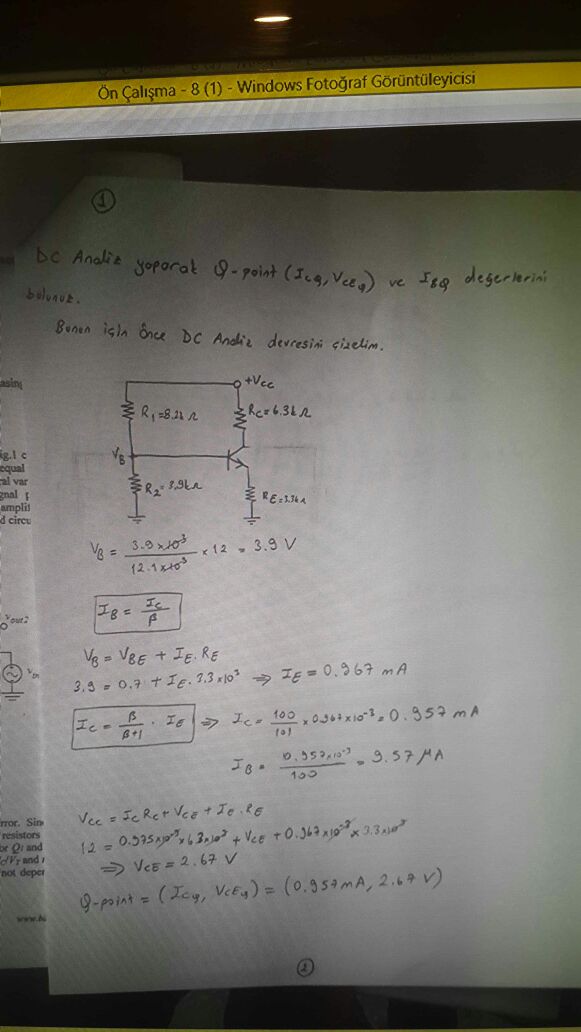 Ön Çalışma - 8 (1) - Windows Fotoğraf Görüntüleyicisi
1
DC Analiz yaparak Q-point (ICQ, VCEQ) ve IBQ değerlerini
bulunuz.
Bunun için önce DC Analiz devresini çizelim.
+VCC
R1=8.2k Ω
RC=6.3k Ω
VB
R2=3.9k Ω
RE=3.3k Ω
VB = 3.9×10³ / 12.1×10³ × 12 = 3.9 V
IB = IC / β
VB = VBE + IE . RE
3.9 = 0.7 + IE . 3.3×10³ ⇒ IE = 0.967 mA
IC = β / β+1 . IE ⇒ IC = 100 / 101 × 0.967×10⁻³ = 0.957 mA
IB = 0.957×10⁻³ / 100 = 9.57 µA
VCC = IC RC + VCE + IE . RE
12 = 0.975×10⁻³ × 6.3×10³ + VCE + 0.967×10⁻³ × 3.3×10³
⇒ VCE = 2.67 V
Q-point = (ICQ, VCEQ) = (0.957mA, 2.67 V)
2
asing
fig.1 c
equal
ral var
gnal p
amplit
d circu
Vout2
Vin
rror. Sin
resistors
or Q1 and
/VT and
not depen